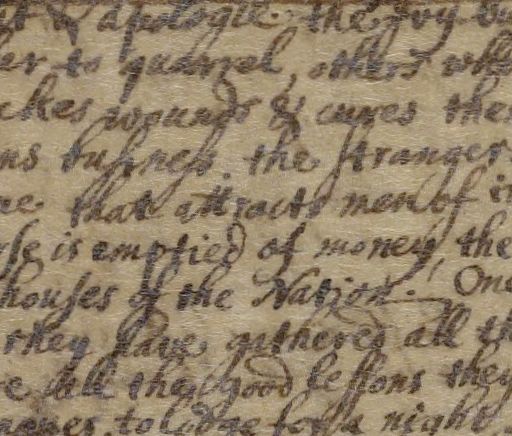 & apologie. the joy
to quarrel, others
wounds & cures
busness. the stranger
that attracts men of
is emptied of money, the
houses of the Nation. One
they have gathered all
all the good lessons they
to lodge for a night